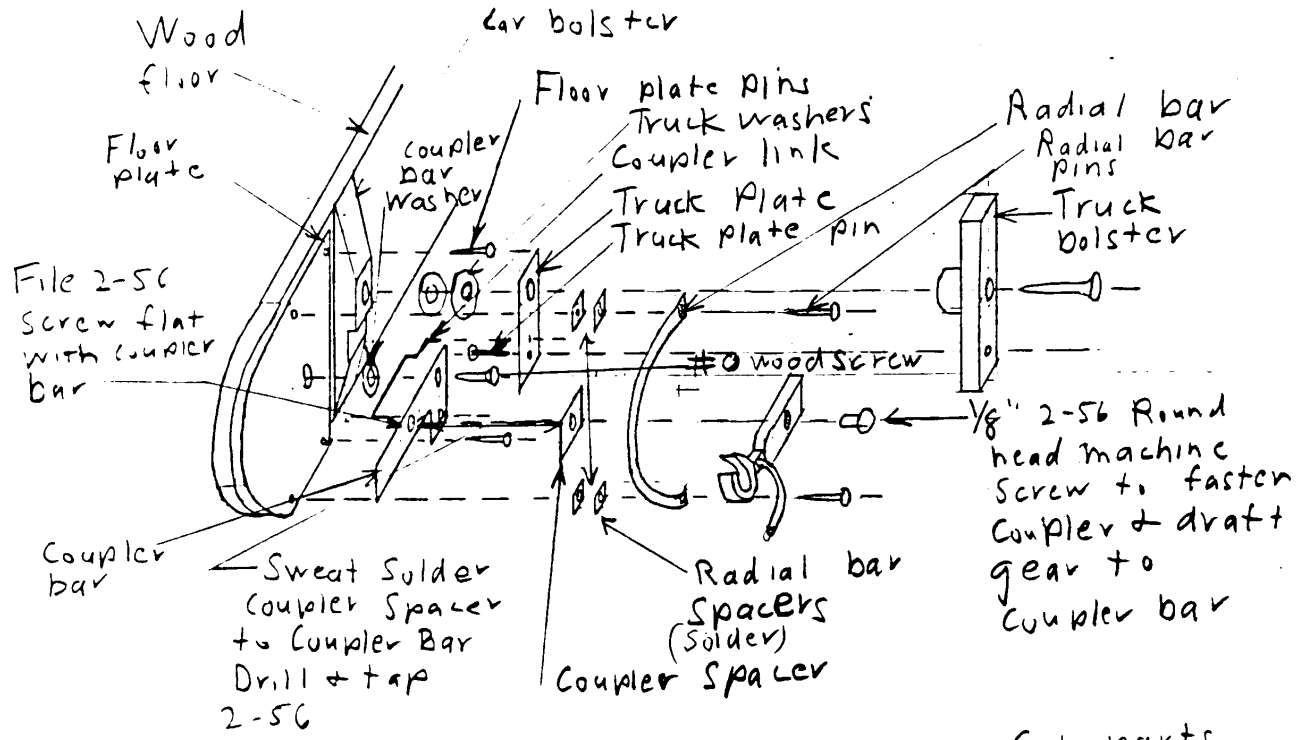 Wood
floor
Car bolster
Floor plate pins
Truck washers
Coupler link
Truck Plate
Truck plate pin
Radial bar
Radial
pins
Truck
bolster
Floor
plate
Coupler
bar
washer
File 2-56
Screw flat
with coupler
bar
#0 woodscrew
1/8" 2-56 Round
head machine
Screw to fasten
Coupler & draft
gear to
Coupler bar
Coupler
bar
Sweat Solder
Coupler Spacer
to Coupler Bar
Drill & tap
2-56
Radial bar
Spacers
(Solder)
Coupler Spacer